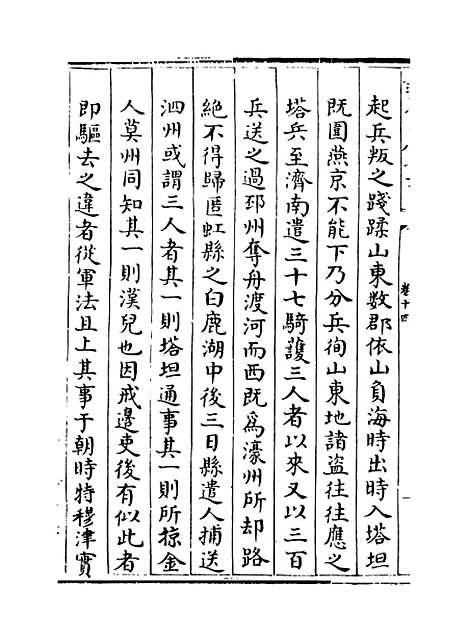 卷十四
起兵叛之踐蹂山東數郡依山負海時出時入塔坦
既圍燕京不能下乃分兵徇山東地諸盜往往應之
塔兵至濟南遣三十七騎護三人者以來又以三百
兵送之過邳州奪舟渡河而西既為濠州所却路
絶不得歸匿虹縣之白鹿湖中後三日縣遣人捕送
泗州或謂三人者其一則塔坦通事其一則所掠金
人莫州同知其一則漢兒也因戒邊吏後有似此者
即驅去之違者從軍法且上其事于朝時特穆津實